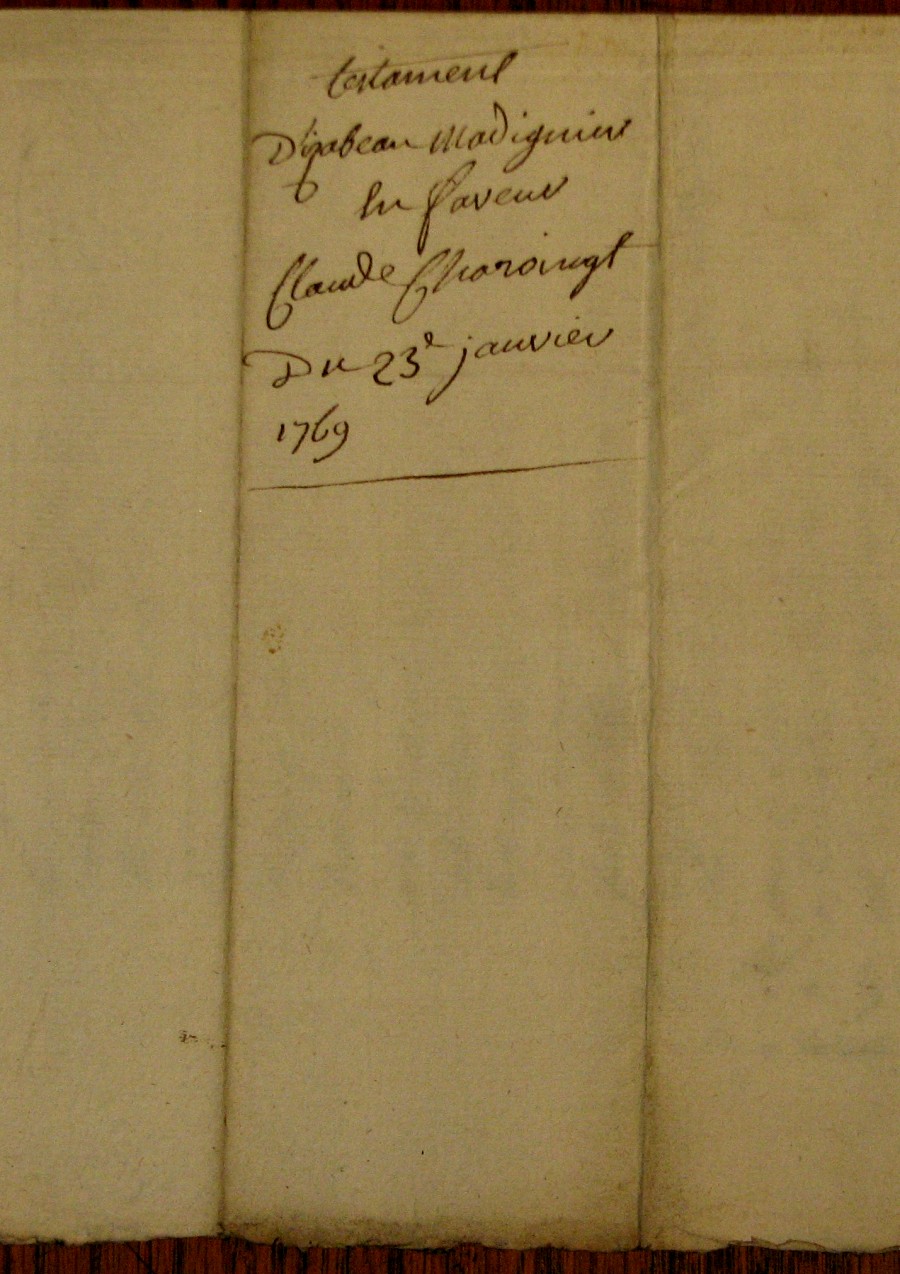 testament
D'izabeau Madignier
En faveur
Claude Charoingt
Du 23e janvier
1769